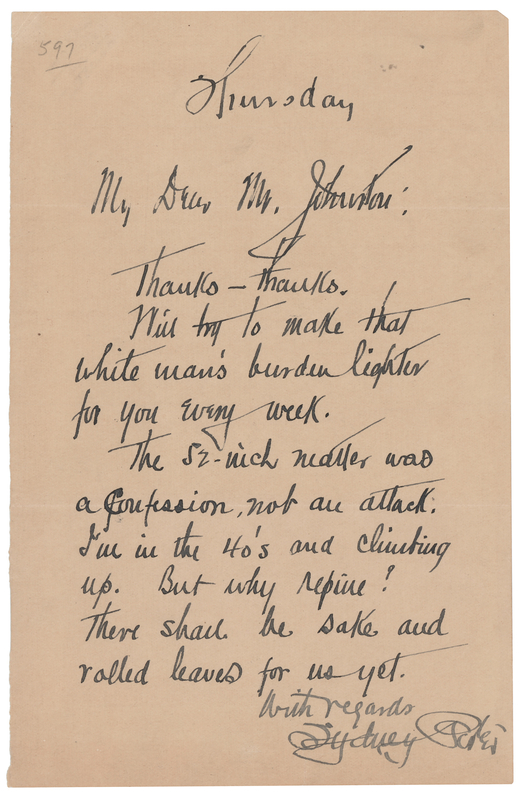 597
Thursday
My Dear Mr. Johnston:
Thanks – thanks.
Will try to make that
white man's burden lighter
for you every week.
The 52-inch matter was
a Confession, not an attack.
I'm in the 40's and climbing
up. But why repine?
There shall be sake and
rolled leaves for us yet.
With regards
Sydney Porter